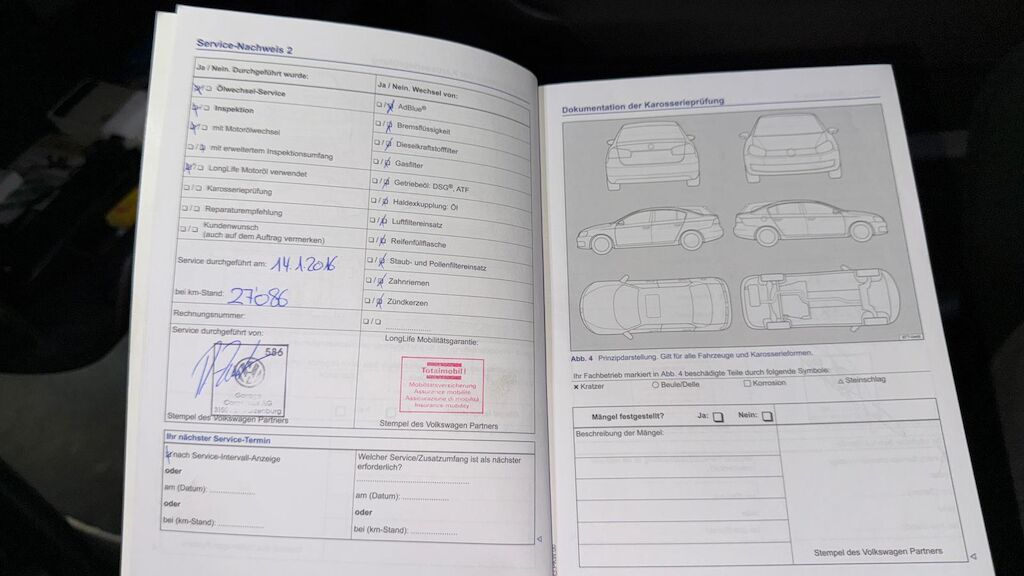 Service-Nachweis 2
Ja / Nein. Durchgeführt wurde:
Ölwechsel-Service
Inspektion
mit Motorölwechsel
mit erweitertem Inspektionsumfang
LongLife Motoröl verwendet
Karosserieprüfung
Reparaturempfehlung
Kundenwunsch
(auch auf dem Auftrag vermerken)
Service durchgeführt am: 14.1.2016
bei km-Stand: 27'086
Rechnungsnummer:
Service durchgeführt von:
586
Stempel des Volkswagen Partners
Ja / Nein. Wechsel von:
AdBlue®
Bremsflüssigkeit
Dieselkraftstofffilter
Gasfilter
Getriebeöl: DSG®, ATF
Haldexkupplung: Öl
Luftfiltereinsatz
Reifenfüllflasche
Staub- und Pollenfiltereinsatz
Zahnriemen
Zündkerzen
LongLife Mobilitätsgarantie:
Totalmobil!
Mobilitätsversicherung
Assurance mobilité
Assicurazione di mobilità
Insurance mobility
Stempel des Volkswagen Partners
Ihr nächster Service-Termin
nach Service-Intervall-Anzeige
oder
am (Datum):
oder
bei (km-Stand):
Welcher Service/Zusatzumfang ist als nächster
erforderlich?
am (Datum):
oder
bei (km-Stand):
Dokumentation der Karosserieprüfung
Abb. 4 Prinzipdarstellung. Gilt für alle Fahrzeuge und Karosserieformen.
Ihr Fachbetrieb markiert in Abb. 4 beschädigte Teile durch folgende Symbole:
× Kratzer ○ Beule/Delle □ Korrosion △ Steinschlag
Mängel festgestellt? Ja: Nein:
Beschreibung der Mängel:
Stempel des Volkswagen Partners